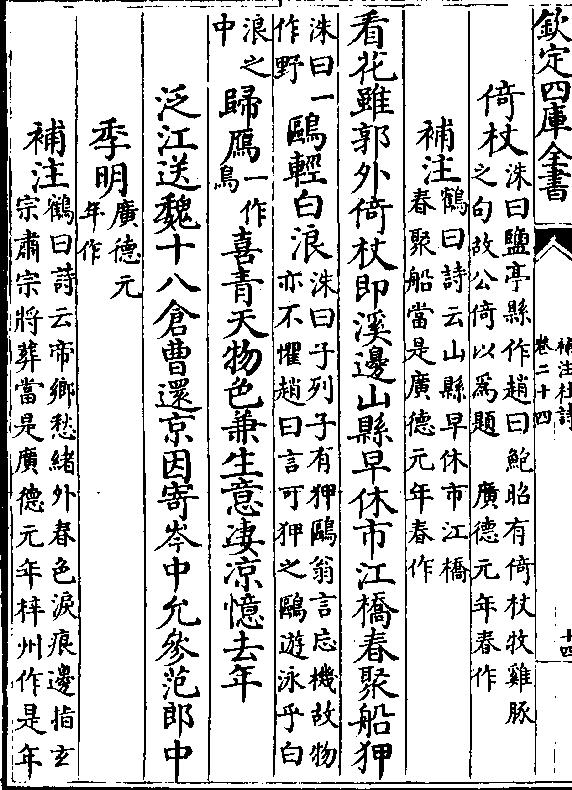 欽定四庫全書
補注杜詩
卷二十四
十四
倚杖洙曰鹽亭縣作趙曰鮑昭有倚杖牧雞豚
之句故公倚以為題　廣德元年春作
補注鶴曰詩云山縣早休市江橋
春聚船當是廣德元年春作
看花雖郭外倚杖即溪邊山縣早休市江橋春聚船狎
鷗輕白浪洙曰一作野
洙曰子列子有狎鷗翁言忘機故物
亦不懼趙曰言可狎之鷗遊泳乎白
浪之中
歸鴈一作鳥喜青天物色兼生意凄涼憶去年
泛江送魏十八倉曹還京因寄岑中允參范郎中
季明廣德元年作
補注鶴曰詩云帝鄉愁緒外春色淚痕邊指玄
宗肅宗將葬當是廣德元年梓州作是年